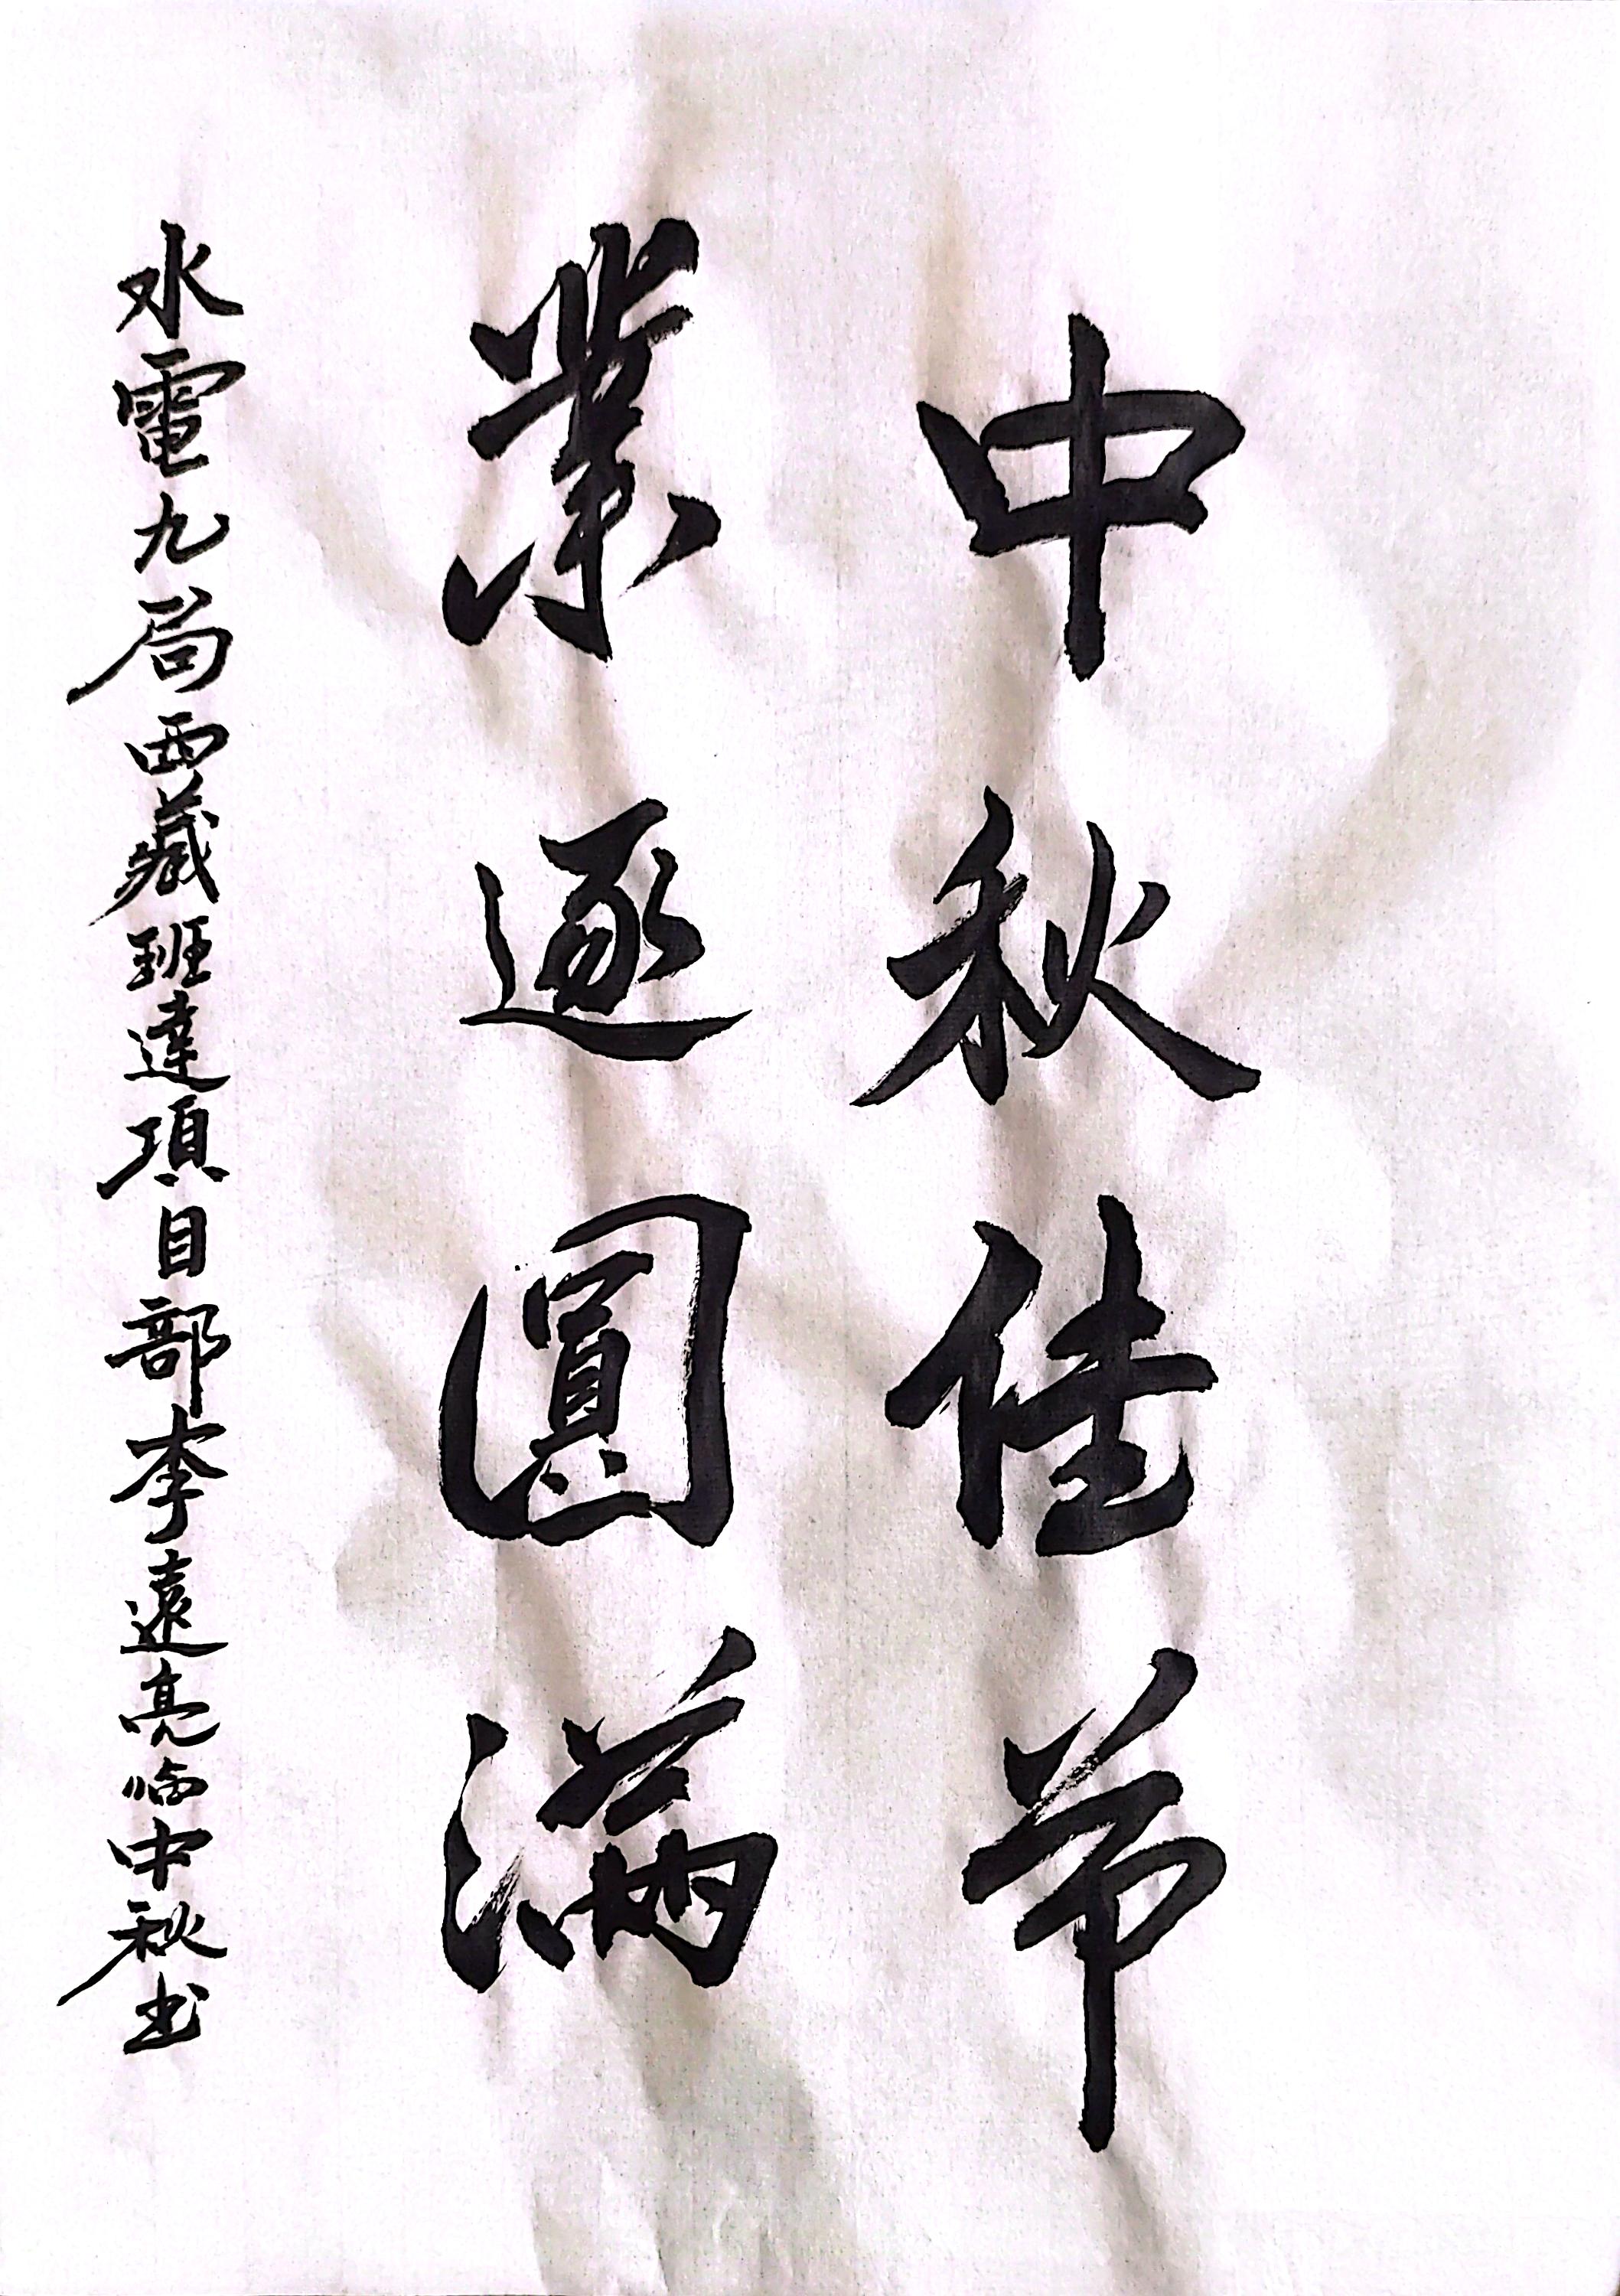 中秋佳节
業逐圓满
水電九局西藏班達項目部李遠亮临中秋书